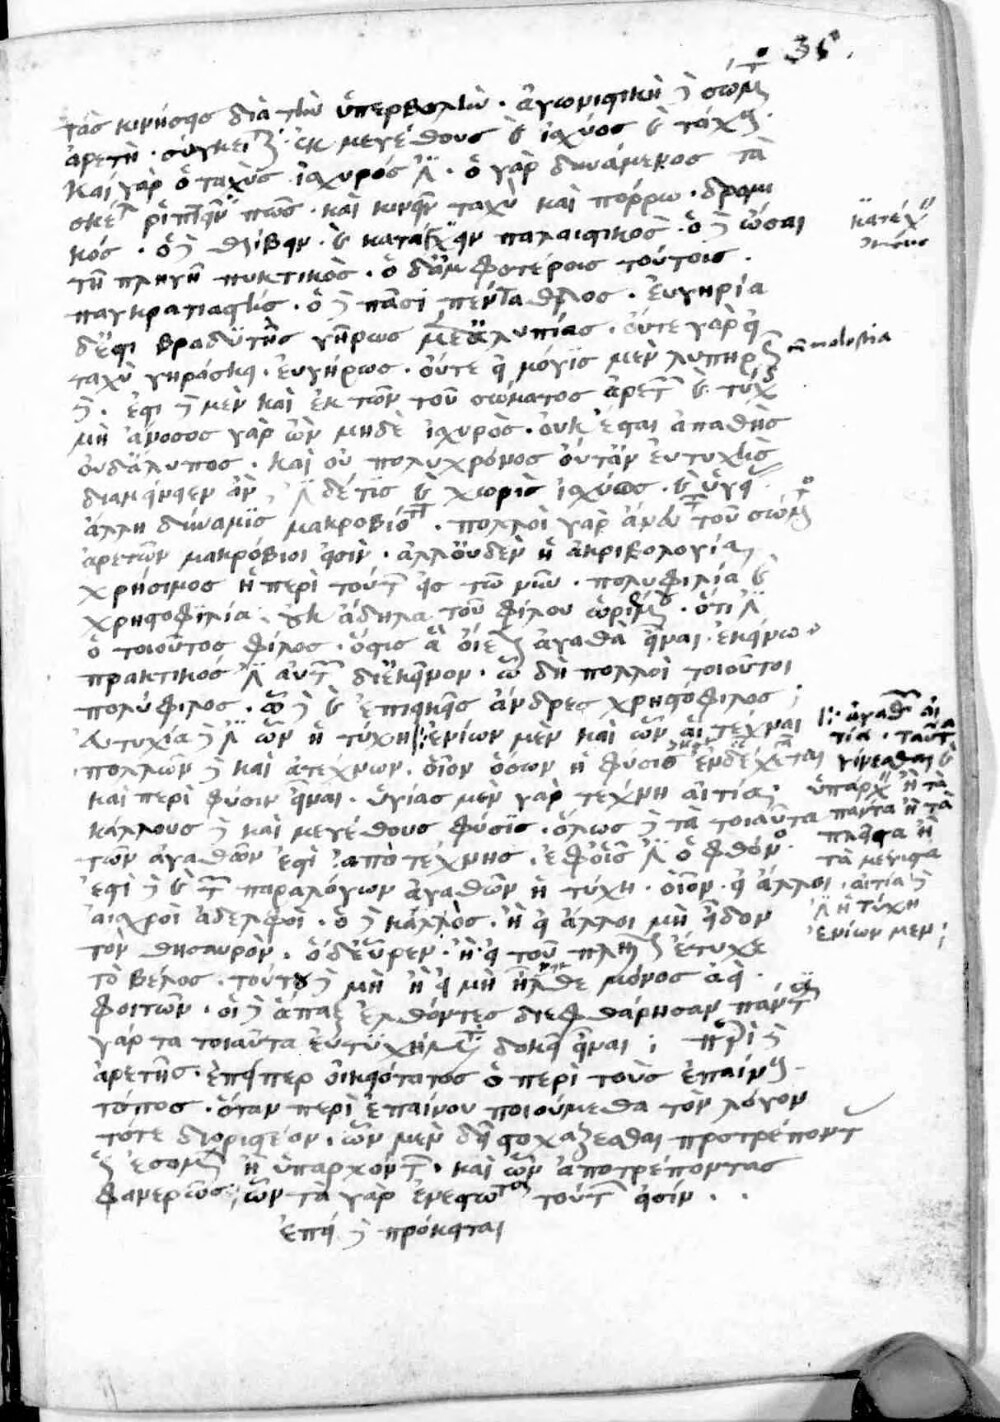 36
τὰς κινήσεις διὰ τὴν ὑπερβολὴν · ἀγωνιστικὴ δὲ σώματος
ἀρετὴ · σύγκειται ἐκ μεγέθους καὶ ἰσχύος καὶ τάχους ·
καὶ γὰρ ὁ ταχὺς ἰσχυρός ἐστιν · ὁ γὰρ δυνάμενος τὰ
σκέλη ῥιπτεῖν πως · καὶ κινεῖν ταχὺ καὶ πόρρω · δρομι
κός · ὁ δὲ θλίβειν · καὶ κατέχειν παλαιστικός · ὁ δὲ ὦσαι
τῇ πληγῇ πυκτικὸς · ὁ δ' ἀμφοτέροις τούτοις ·
παγκρατιαστής · ὁ δὲ πᾶσι πένταθλος · εὐγηρία
δέ ἐστι βραδύτης γήρως μετ' ἀλυπίας · οὔτε γὰρ εἰ
ταχὺ γηράσκει · εὐγήρως · οὔτε εἰ μόγις μὲν λυπηρῶς
δέ · ἔστι δὲ μὲν καὶ ἐκ τῶν τοῦ σώματος ἀρετῶν καὶ τύχης
μὴ ἄνοσος γὰρ ὢν μηδὲ ἰσχυρὸς · οὐκ ἔσται ἀπαθὴς
οὐδ' ἄλυπος · καὶ οὐ πολυχρόνιος οὔτ' ἂν εὐτυχὴς
διαμείνειεν ἂν · ἔστι δέ τις καὶ χωρὶς ἰσχύος · καὶ ὑγιείας
ἄλλη δύναμις μακροβιότητος · πολλοὶ γὰρ ἄνευ τῶν τοῦ σώματος
ἀρετῶν μακρόβιοι εἰσὶν · ἀλλ' οὐδὲν ἡ ἀκριβολογία
χρήσιμος ἡ περὶ τούτων εἰς τὸ νῦν · πολυφιλία καὶ
χρηστοφιλία · οὐκ ἄδηλα τοῦ φίλου ὡρισμένου · ὅτι ἔστιν
ὁ τοιοῦτος φίλος · ὅστις ἃ οἴεται ἀγαθὰ εἶναι ἐκείνῳ
πρακτικός ἐστιν αὐτῶν δι' ἐκεῖνον · ᾧ δὴ πολλοὶ τοιοῦτοι
πολύφιλος · ᾧ δὲ καὶ ἐπιεικεῖς ἄνδρες χρηστόφιλος ;
εὐτυχία δέ ἐστιν ὧν ἡ τύχη ἐνίων μὲν καὶ ὧν αἱ τέχναι
πολλῶν δὲ καὶ ἀτέχνων · οἷον ὅσων ἡ φύσις ἐνδέχεται
καὶ περὶ φύσιν εἶναι · ὑγιείας μὲν γὰρ τέχνη αἰτία ·
κάλλους δὲ καὶ μεγέθους φύσις · ὅλως δὲ τὰ τοιαῦτα
τῶν ἀγαθῶν ἐστὶ ἀπὸ τέχνης · ἐφ' οἷς ἐστιν ὁ φθόνος ·
ἔστι δὲ καὶ τῶν παραλόγων ἀγαθῶν ἡ τύχη · οἷον · εἰ ἄλλοι
αἰσχροὶ ἀδελφοὶ · ὁ δὲ κάλλος · ἢ εἰ ἄλλοι μὴ εἶδον
τὸν θησαυρὸν · ὁ δ' εὗρεν · ἢ εἰ τοῦ πλησίον ἔτυχε
τὸ βέλος · τούτου δὲ μὴ ἢ εἰ μὴ ἦλθε μόνος ἀεὶ ·
φοιτῶν · οἱ δὲ ἅπαξ ἐλθόντες διεφθάρησαν πάντα
γὰρ τα τοιαῦτα εὐτυχήματα δοκεῖ εἶναι ; περὶ δὲ
ἀρετῆς · ἐπείπερ οἰκειότατος ὁ περὶ τοὺς ἐπαίνους
τόπος · ὅταν περὶ ἐπαίνου ποιούμεθα τὸν λόγον
τότε διοριστέον · ὧν μὲν δεῖ στοχάζεσθαι προτρέποντας
ὡς ἐσομένων ἢ ὑπαρχόντων · καὶ ὧν ἀποτρέποντας
φανερῶς · τὰ γὰρ ἐναντία τούτων εἰσίν ·
ἐπεὶ δὲ πρόκειται
κατέχειν
molestia
ἀγαθῶν αἰ
τία · ταῦτα
γίνεσθαι καὶ
ὑπάρχειν ἢ τὰ
πάντα ἢ τὰ
πλεῖστα ἢ
τὰ μέγιστα
αἰτία δὲ
ἐστιν ἡ τύχη
ἐνίων μεν ;